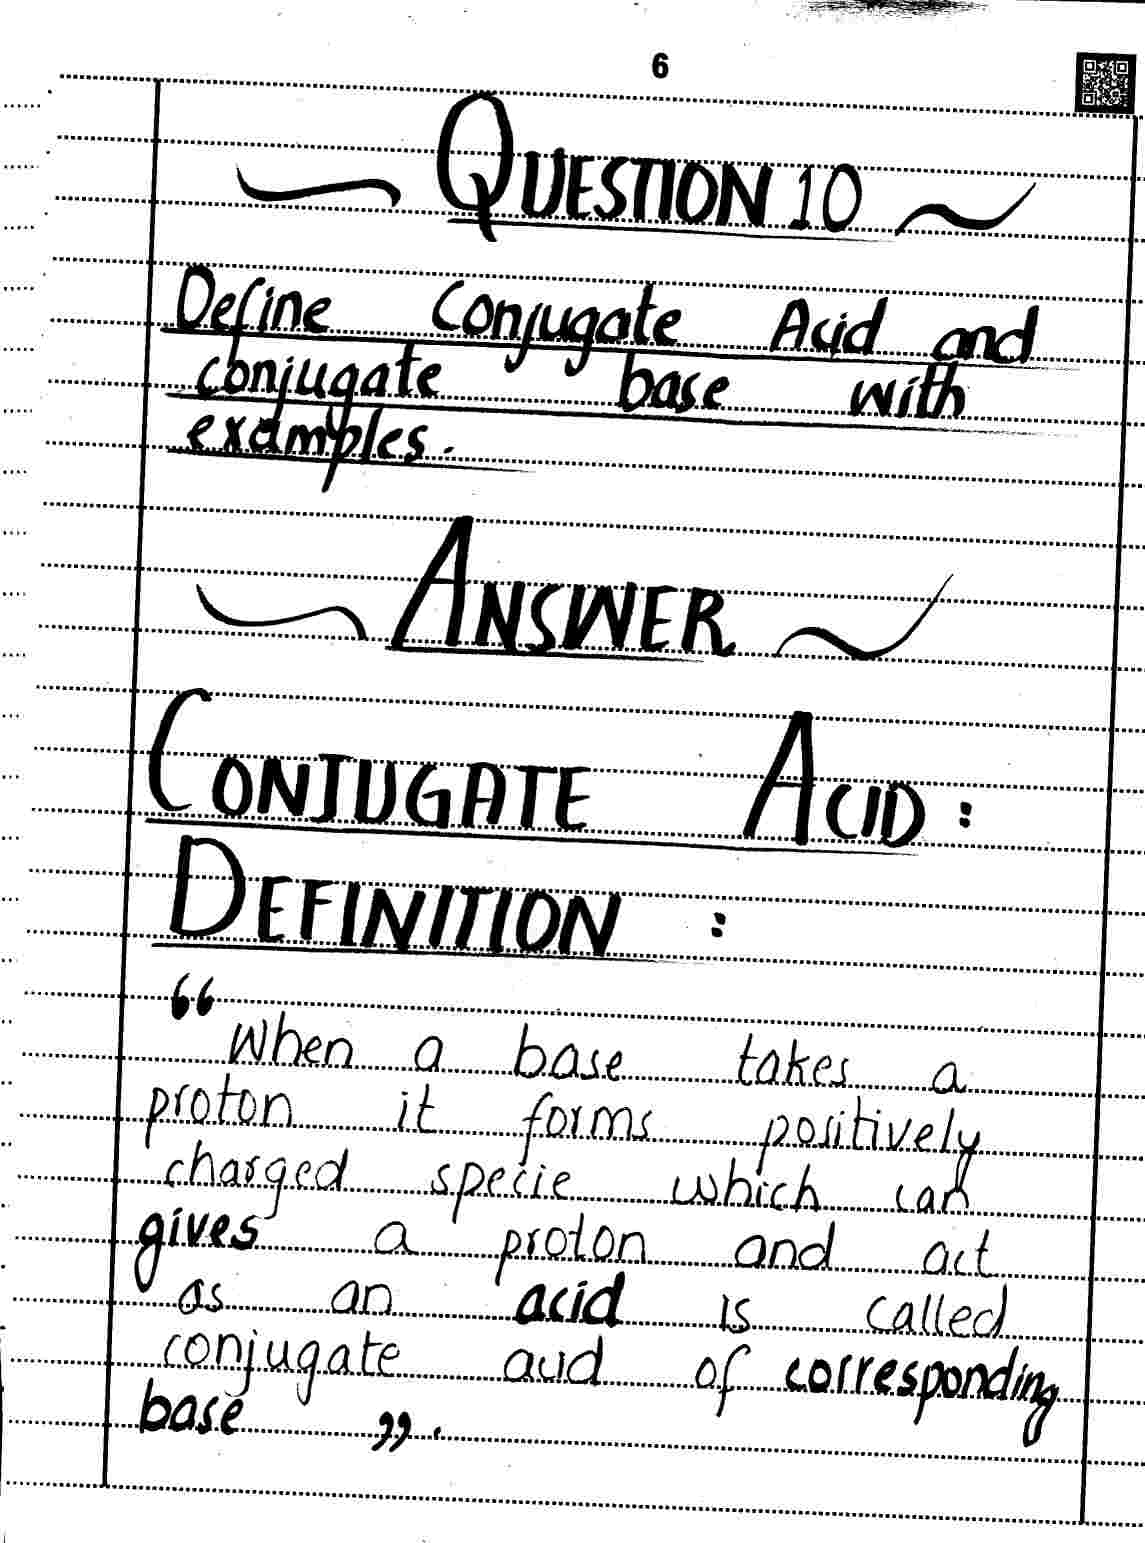 6
QUESTION 10
Define Conjugate Acid and
conjugate base with
examples.
ANSWER
CONJUGATE ACID :
DEFINITION :
“
When a base takes a
proton it forms positively
charged specie which can
gives a proton and act
as an acid is called
conjugate acid of corresponding
base ”.